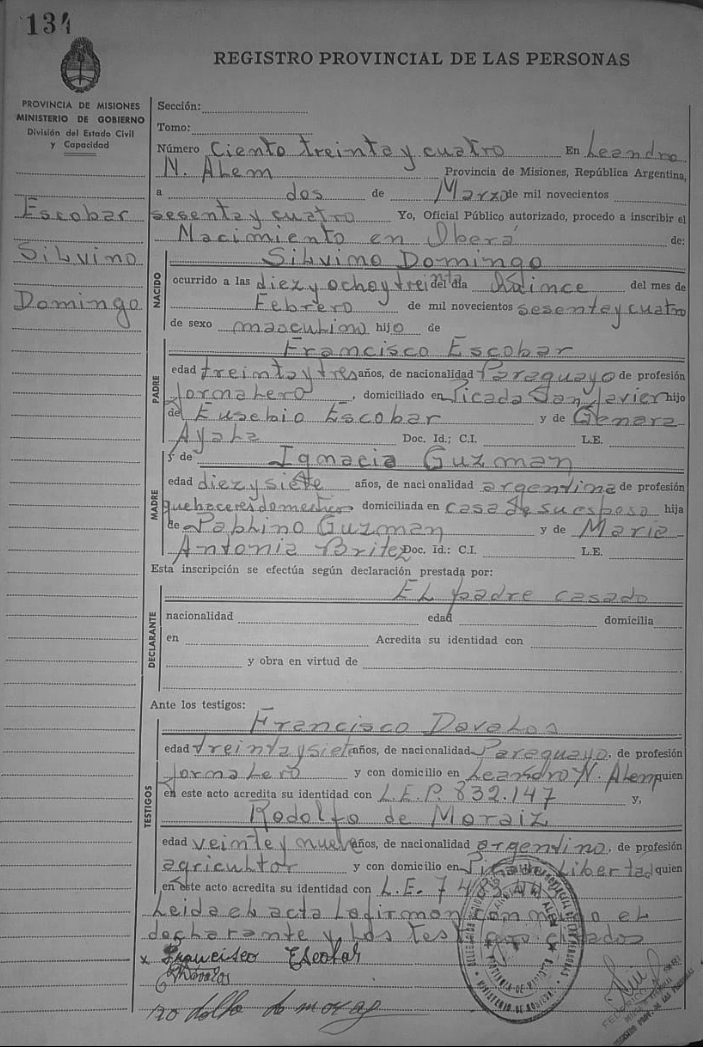 134
REGISTRO PROVINCIAL DE LAS PERSONAS
PROVINCIA DE MISIONES
MINISTERIO DE GOBIERNO
División del Estado Civil
y Capacidad
Escobar
Silvino
Domingo
Sección:
Tomo:
Número Ciento treinta y cuatro En Leandro
N. Alem Provincia de Misiones, República Argentina,
a dos de Marzo de mil novecientos
sesenta y cuatro Yo, Oficial Público autorizado, procedo a inscribir el
Nacimiento en Oberá de:
NACIDO
Silvino Domingo
ocurrido a las diez y ocho y trei del día Quince del mes de
Febrero de mil novecientos sesente y cuatro
de sexo masculino hijo de
PADRE
Francisco Escobar
edad treinta y tres años, de nacionalidad Paraguayo de profesión
Jornalero, domiciliado en Picada San Javier hijo
de Eusebio Escobar y de Genara
Ayala Doc. Id.; C.I. L.E.
MADRE
y de Ignacia Guzman
edad diez y siete años, de nacionalidad argentina de profesión
quehaceres domesticos domiciliada en casa de su esposo hija
de Pablino Guzman y de Maria
Antonia Britez Doc. Id.: C.I. L.E.
Esta inscripción se efectúa según declaración prestada por:
DECLARANTE
El padre casado
nacionalidad edad domicilia
en Acredita su identidad con
y obra en virtud de
Ante los testigos:
TESTIGOS
Francisco Davalos
edad treinta y siete años, de nacionalidad Paraguayo, de profesión
Jornalero y con domicilio en Leandro N. Alem quien
en este acto acredita su identidad con L.E.P. 832.147 y,
Rodolfo de Moraiz
edad veinte y nueve años, de nacionalidad argentino, de profesión
agricultor y con domicilio en Libertad quien
en este acto acredita su identidad con L.E. 7
Leida el acta la firman con el
declarante y los citados
x Francisco Escobar
Davalos
rodolfo de moraz